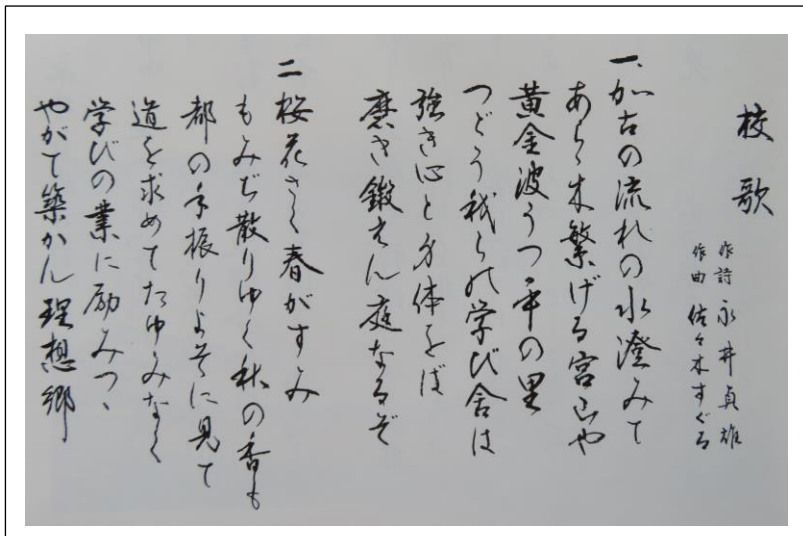 校歌
作詩 永井貞雄
作曲 佐々木すぐる
一、加古の流れの水澄みて
あらゝ木繁げる宮山や
黄金波うつ平の里
つどう我らの学び舎は
強き心と身体をば
磨き鍛えん庭なるぞ
二 桜花さく春がすみ
もみぢ散りゆく秋の香も
都の手振りよそに見て
道を求めてたゆみなく
学びの業に励みつゝ
やがて築かん理想郷